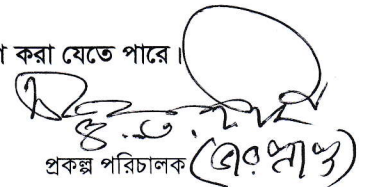 করা যেতে পারে।
প্রকল্প পরিচালক (ভারপ্রাপ্ত)